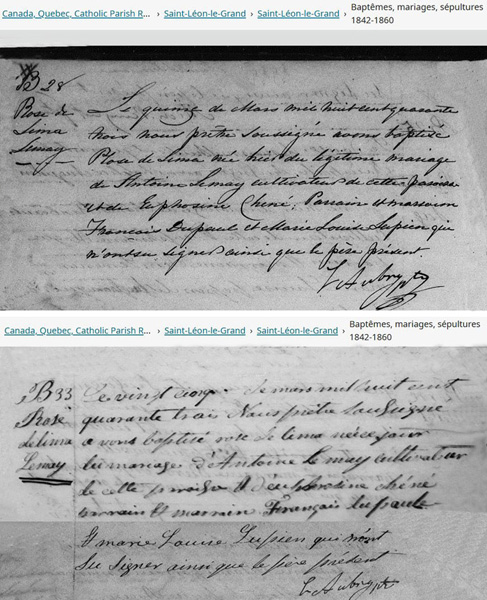 Canada, Quebec, Catholic Parish R... › Saint-Léon-le-Grand › Saint-Léon-le-Grand › Baptêmes, mariages, sépultures 1842-1860
B 28
Rose de
Lima
Lemay
Le quinze de Mars mil huit cent quarante
trois nous prêtre soussigné avons baptisé
Rose de Lima née hier du légitime mariage
de Antoine Lemay cultivateur de cette paroisse
et de Euphosine Chene. Parrain et marraine
Francois Dupaul et Marie Louise Lupien qui
n'ont su signer ainsi que le père présent.
L Aubry ptr
Canada, Quebec, Catholic Parish R... › Saint-Léon-le-Grand › Saint-Léon-le-Grand › Baptêmes, mariages, sépultures 1842-1860
B33
Rose
de lima
Lemay
Le vingt cinq de mars mil huit cent
quarante trois Nous prêtre soussigné
avons baptisé rose de lima née ce jour
du mariage d'Antoine Lemay cultivateur
de cette paroisse et d'euphrosine chéne
parrain et marrain François
et marie Louise Lupien qui n'ont
su signer ainsi que le père présent
L Aubry ptr